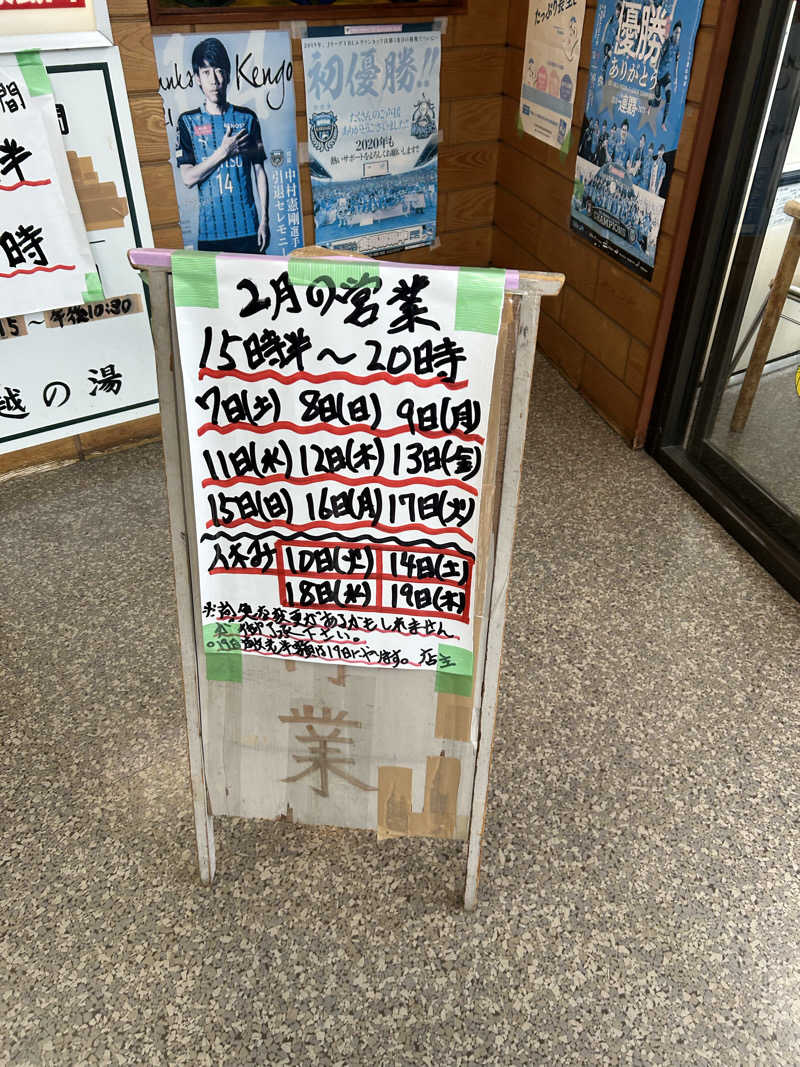 2月の営業
15時半～20時
7日(土) 8日(日) 9日(月)
11日(水) 12日(木) 13日(金)
15日(日) 16日(月) 17日(火)
休み 10日(火) 14日(土)
18日(水) 19日(木)
がありかもしれません
下さい。
店主
業
間
半
時
15 ～ 午後10:30
越の湯
Kengo
14
中村憲剛選手
引退セレモニー
初優勝!!
たくさんのご声援
ありがとうございました
2020年も
熱いサポートをよろしくお願いします
優勝
ありがとう
CHAMPIONS